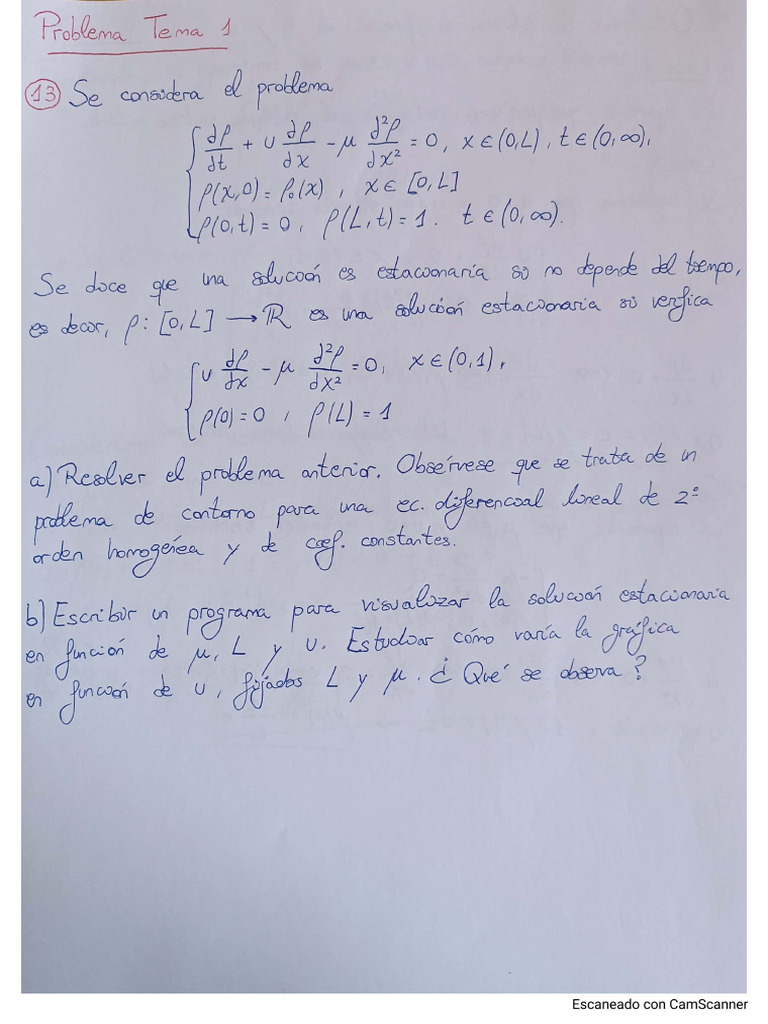 Problema Tema 1
13) Se considera el problema
∂ρ/∂t + u ∂ρ/∂x - μ ∂²ρ/∂x² = 0, x ∈ (0,L), t ∈ (0,∞),
ρ(x,0) = ρ₀(x), x ∈ [0,L]
ρ(0,t) = 0, ρ(L,t) = 1. t ∈ (0,∞).
Se dice que una solución es estacionaria si no depende del tiempo,
es decir, ρ: [0,L] → ℝ es una solución estacionaria si verifica
u dρ/dx - μ d²ρ/dx² = 0, x ∈ (0,1),
ρ(0) = 0, ρ(L) = 1
a) Resolver el problema anterior. Obsérvese que se trata de un
problema de contorno para una ec. diferencial lineal de 2º
orden homogénea y de coef. constantes.
b) Escribir un programa para visualizar la solución estacionaria
en función de μ, L y u. Estudiar cómo varía la gráfica
en función de u, fijados L y μ. ¿Qué se observa?
Escaneado con CamScanner